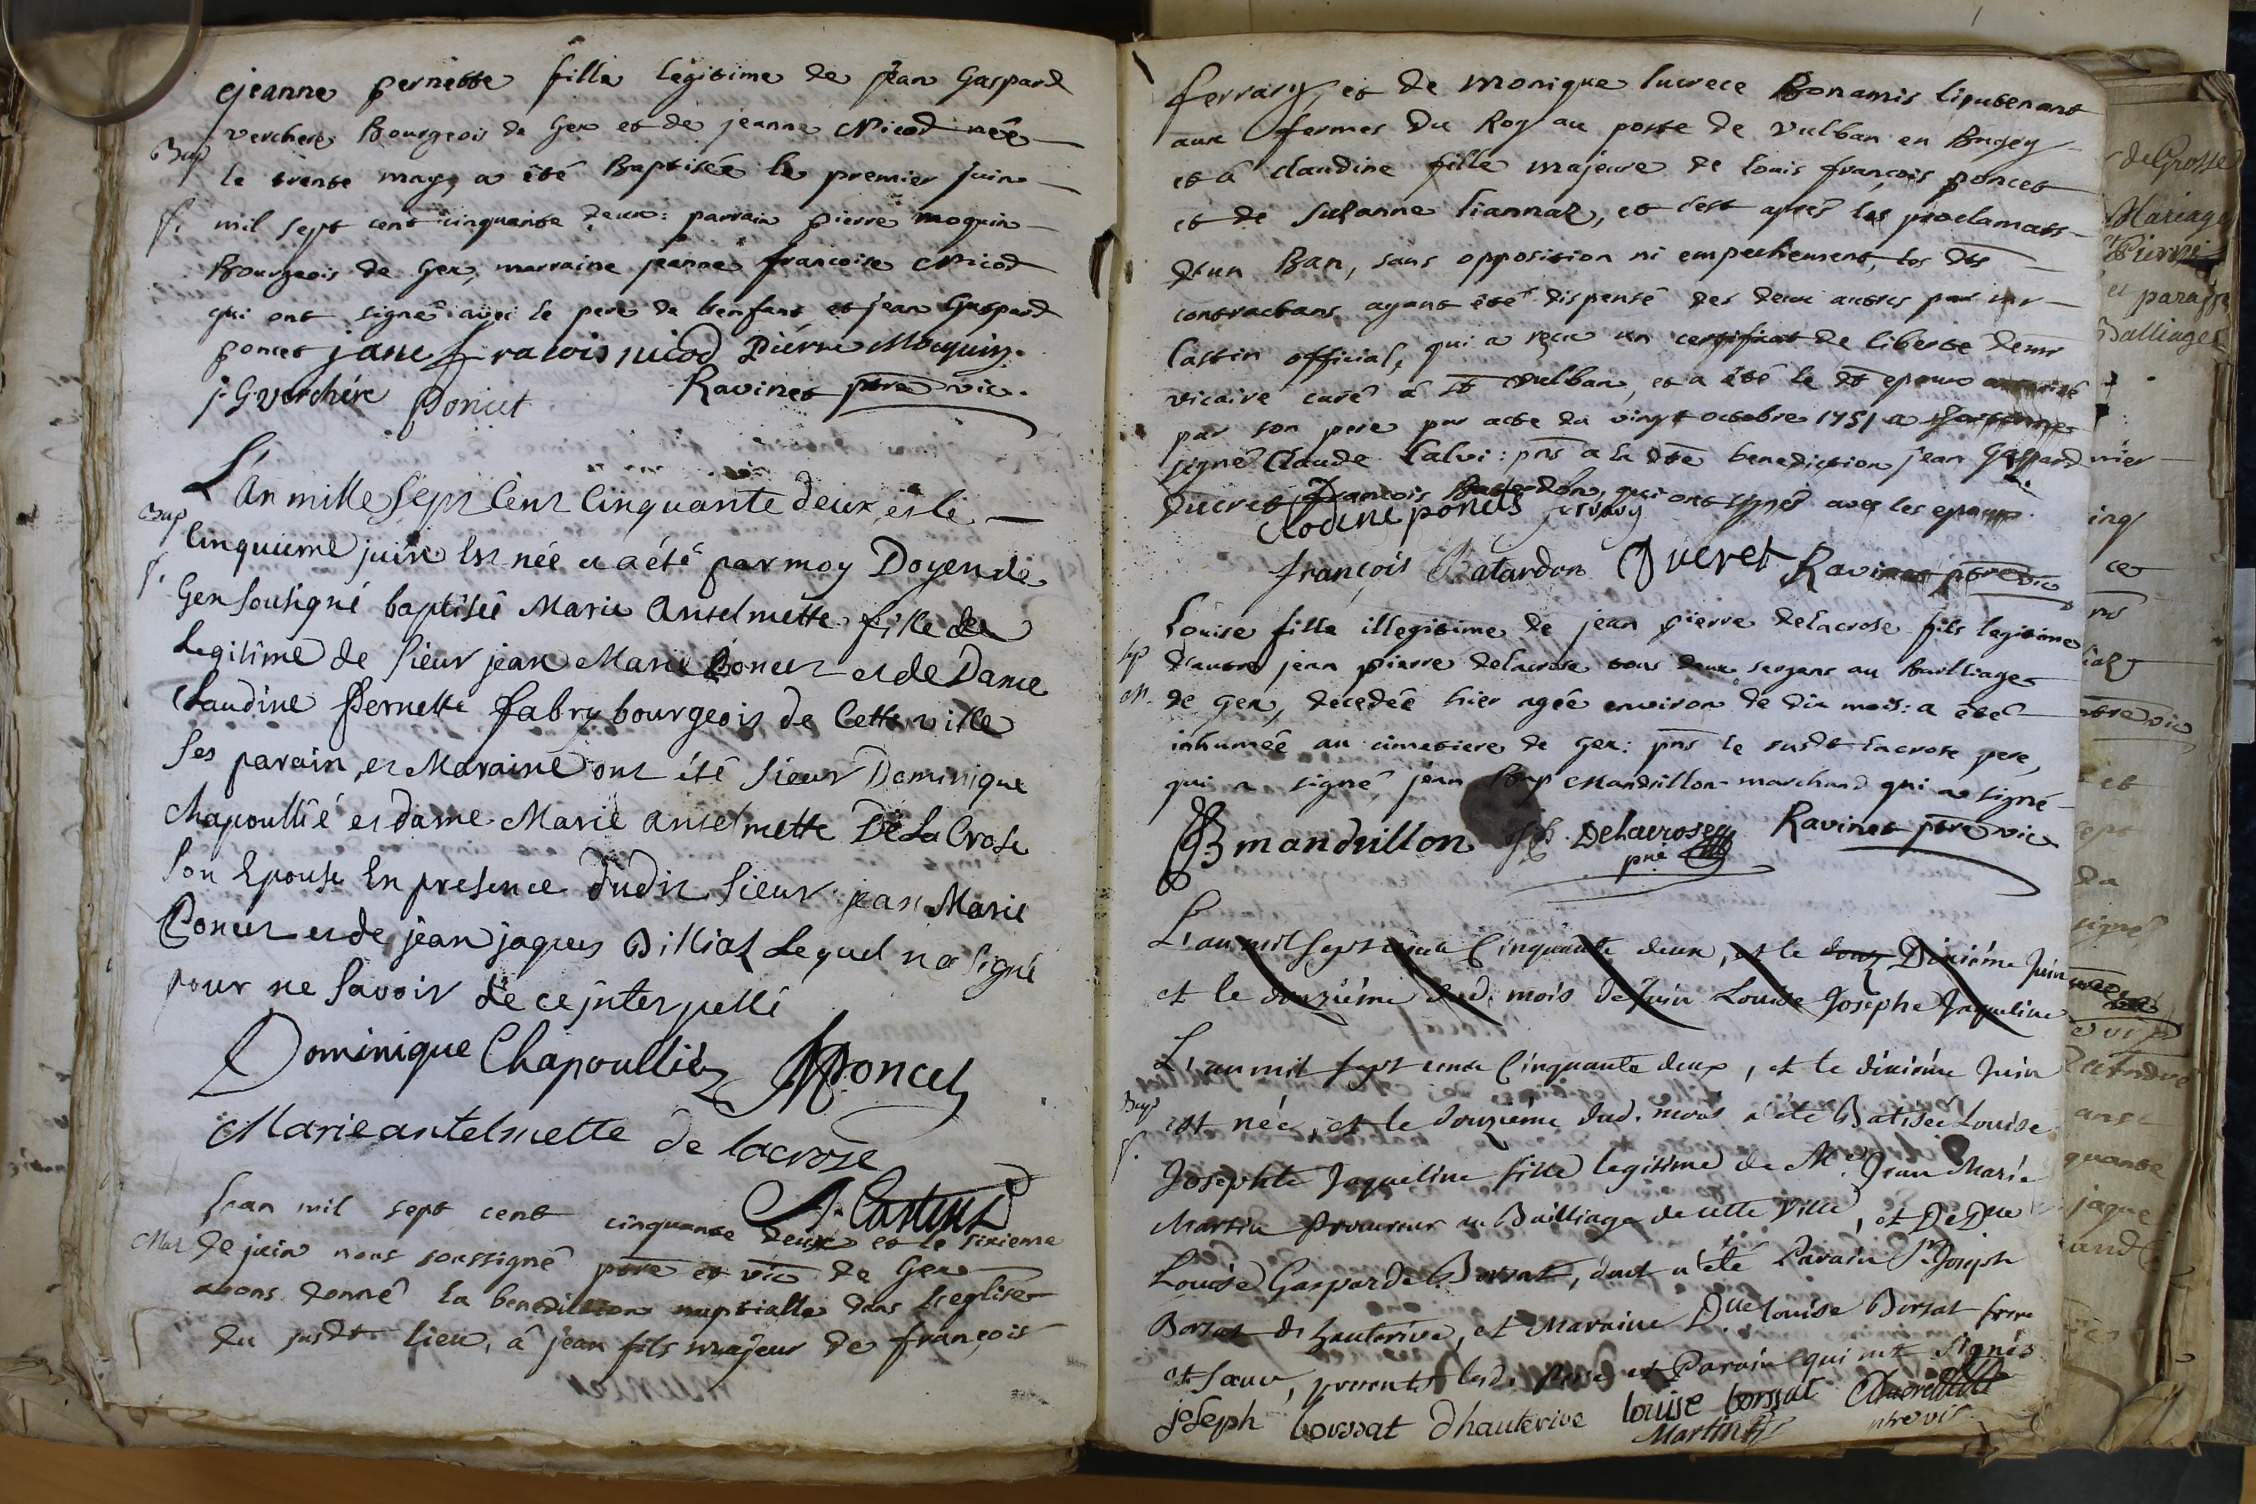 jeanne pernette fille legitime de jean Gaspard
verchere Bourgeois de Gex et de jeanne Nicod née
Bap
le trente may a été Baptisée le premier juin
f. mil sept cent cinquante deux: parrain pierre moquin
Bourgeois de Gex, marraine jeanne francoise Nicod
qui ont signé avec le pere de l'enfant et jean Gaspard
poncet jane fracois nicod Piérre Mocquin.
j. G verchére poncet Ravinet ptre vic.
L'An mille Sept Cent Cinquante deux, et le
Bap
Cinquieme juin Est née et a été par moy Doyen de
f.
Gex sousigné baptisée Marie Antelmette fille
Legitime de Sieur jean Marie Poncet et de Dame
Claudine Pernette Fabry bourgeois de Cette ville
Ses parain, et Maraine ont été Sieur Dominique
Chapoullié et dame Marie antelmette De La Crose
Son Epouse En presence dudit Sieur jean Marie
Poncet et de jean jaques Billiat Lequel n'a signé
pour ne Savoir de ce jnterpellé
Dominique Chapoullié JMPoncet
Marie antelmette de lacroze
Castin
L'an mil sept cent cinquante deux et le sixieme
Mar de juin nous soussigné ptre et vic de Gex
avons donné la benediction nuptialle dans L'eglise
du susdt lieu, à jean fils majeur de françois
ferrary et de monique lucrece Bonamis lieutenant
aux fermes Du Roy au poste de Vulban en Bugey
et à claudine fille majeure de louis françois poncet
et de Suzanne liannaz, et c'est après les proclamats
d'un Ban, sans opposition ni empechement, les dts
contractans ayant été dispensé des deux autres par mr
Castin official, qui a reçu un certificat de liberté de mr
vicaire curé à st Vulban, et a été le dt epoux
par son pere par acte du vingt octobre 1751 a
signé Claude Calvi: pns a la dte benediction jean Gaspard
Ducret François Batardon, qui ont signés avec les epoux.
Clodine poncets ferrary
françois Batardon Ducret Ravinet ptre vic
Louise fille illegitime de jean pierre delacrose fils legitime
Sep d'autre jean pierre delacrose tous deux sergens au Bailliage
de Gex, decedée hier agée environ de dix mois: a été
inhumée au cimetiere de Gex: pns le susdt lacrose pere,
qui a signé jean Bap Mandrillon marchand qui a signé
JB mandrillon Delacrose Ravinet ptre vic
pne
L'an mil sept cent Cinquante deux, et le Dixiéme Juin
et le douziéme dud. mois de Juin Louise Josephe Jaqueline
L'an mil sept cent Cinquante deux, et le dixiéme Juin
Bap
est née, et le douziéme dud. mois a été Batisée Louise
f.
Josephte Jaqueline fille legitime de Me. Jean Marie
Martin procureur au Bailliage de cette ville, et De Dlle
Louise Gasparde Borsat, dont a été Parain Sr. Joseph
Borsat d'hauterive, et Maraine Dlle louise Borsat frere
et Sœur, presents led. Pere et Parain qui ont signés
joseph borssat dhauterive louise borssat
Martin ptre vic